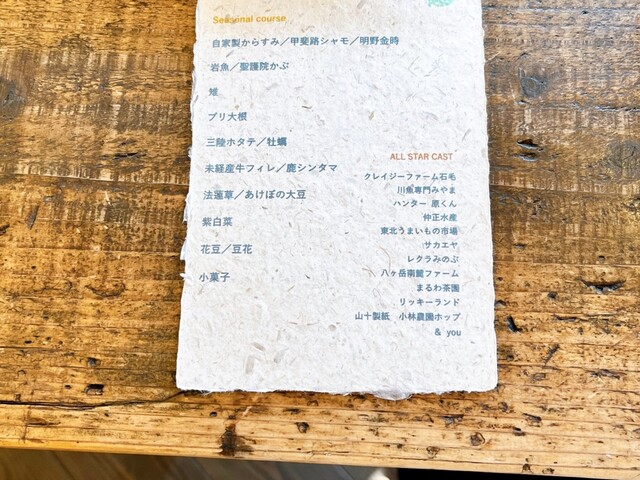 Seasonal course
自家製からすみ／甲斐路シャモ／明野金時
岩魚／聖護院かぶ
雉
ブリ大根
三陸ホタテ／牡蠣
未経産牛フィレ／鹿シンタマ
法蓮草／あけぼの大豆
紫白菜
花豆／豆花
小菓子
ALL STAR CAST
クレイジーファーム石毛
川魚専門みやま
ハンター 原くん
仲正水産
東北うまいもの市場
サカエヤ
レクラみのぶ
八ヶ岳南麓ファーム
まるわ茶園
リッキーランド
山十製紙　小林農園ホップ
& you